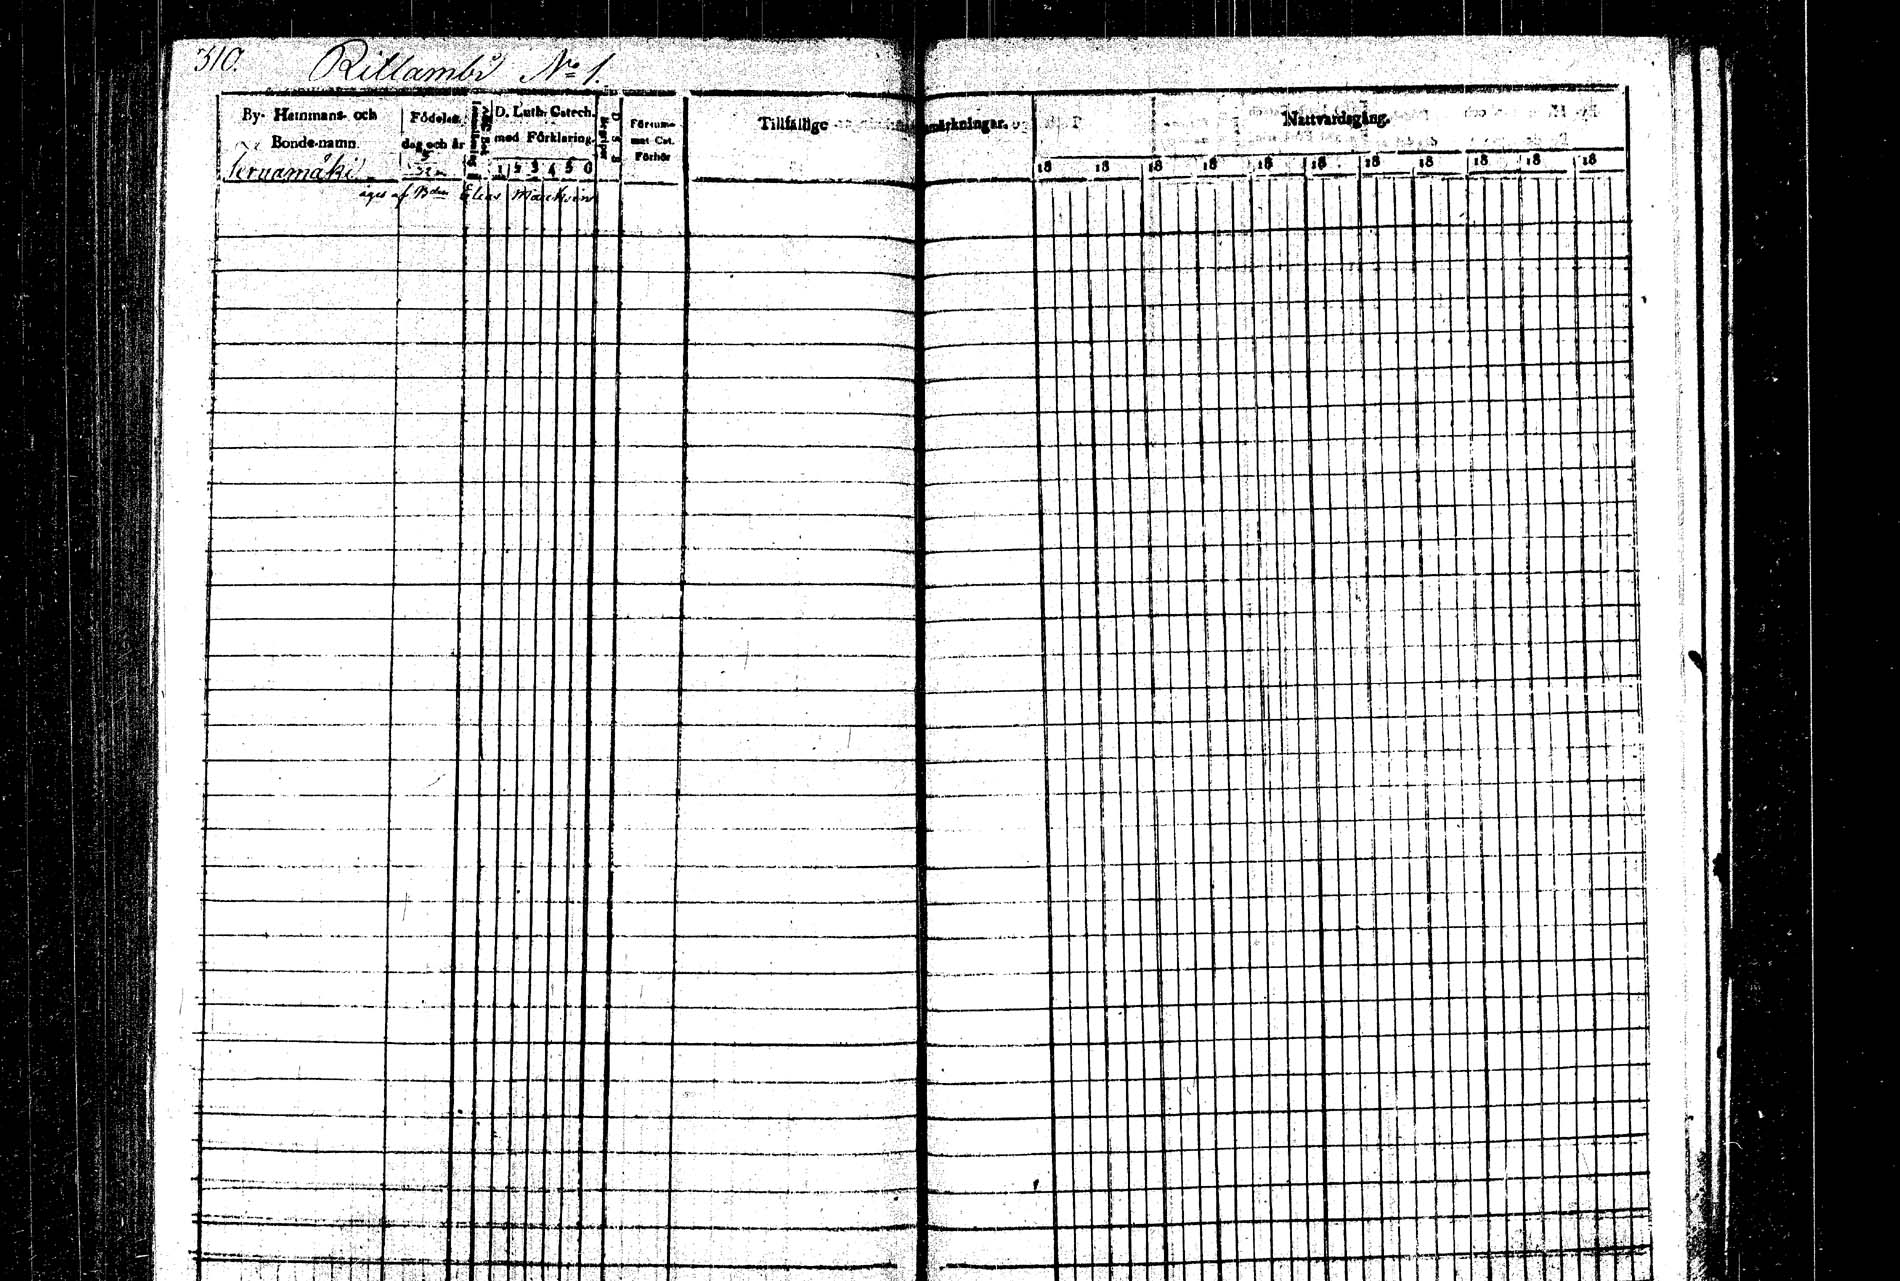 310. Rillambi No 1.
By- Hemmans- och
Bonde-namn.
Födelse-
dag och år
D. Luth. Catech.
med Förklaring.
1 2 3 4 5 0
Försum-
mat Cat.
Förhör
Tillfällige
märkningar.
Nattvardsgång.
18 18 18 18 18 18 18 18 18 18 18
äges af Bdn Elias